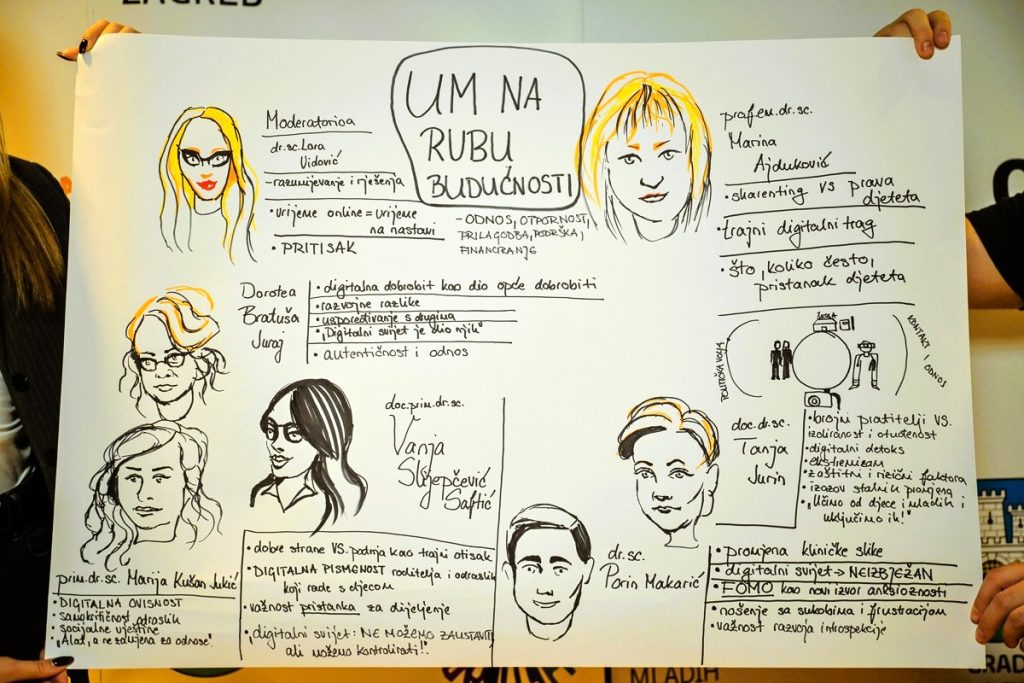 ZAGREB
UM NA
RUBU
BUDUĆNOSTI
- ODNOS, OTPORNOST,
PRILAGODBA, PODRŠKA,
FINANCIRANJE
Moderatorica
dr.sc. Lara
Vidović
- razumijevanje i rješenja
• vrijeme online = vrijeme
na nastavi
• PRITISAK
prof.em.dr.sc.
Marina
Ajduković
• sharenting VS prava
djeteta
• trajni digitalni trag
• što, koliko često,
pristanak djeteta
ŠKOLA
POLITIČKA VOLJA
KONTAKT I ODNOS
Dorotea
Bratuša
Juraj
• digitalna dobrobit kao dio opće dobrobiti
• razvojne razlike
• uspoređivanje s drugima
• „Digitalni svijet je dio njih"
• autentičnost i odnos
doc.prim.dr.sc.
Vanja
Slijepčević
Saftić
• dobre strane VS. podnja kao trajni otisak
• DIGITALNA PISMENOST roditelja i odraslih
koji rade s djecom
• važnost pristanka za dijeljenje
• digitalni svijet: NE MOŽEMO ZAUSTAVITI
ali možemo kontrolirati!".
prim.dr.sc. Marija Kušan Jukić
• DIGITALNA OVISNOST
• samokritičnost odraslih
• socijalne vještine
• „Alat, a ne zamjena za odnose".
doc.dr.sc.
Tanja
Jurin
• brojni pratitelji VS.
izoliranost i otuđenost
• digitalni detoks
• ekstremizam
• zaštitni i rizični faktora
• izazov stalnih promjena
• „Učimo od djece i mladih i
uključimo ih!"
dr.sc.
Porin Makarić
• promjena kliničke slike
• digitalni svijet → NEIZBJEŽAN
• FOMO kao novi izvor anksioznosti
• nošenje sa sukobima i frustracijom
• važnost razvoja introspekcije
MLADIH
GRAD